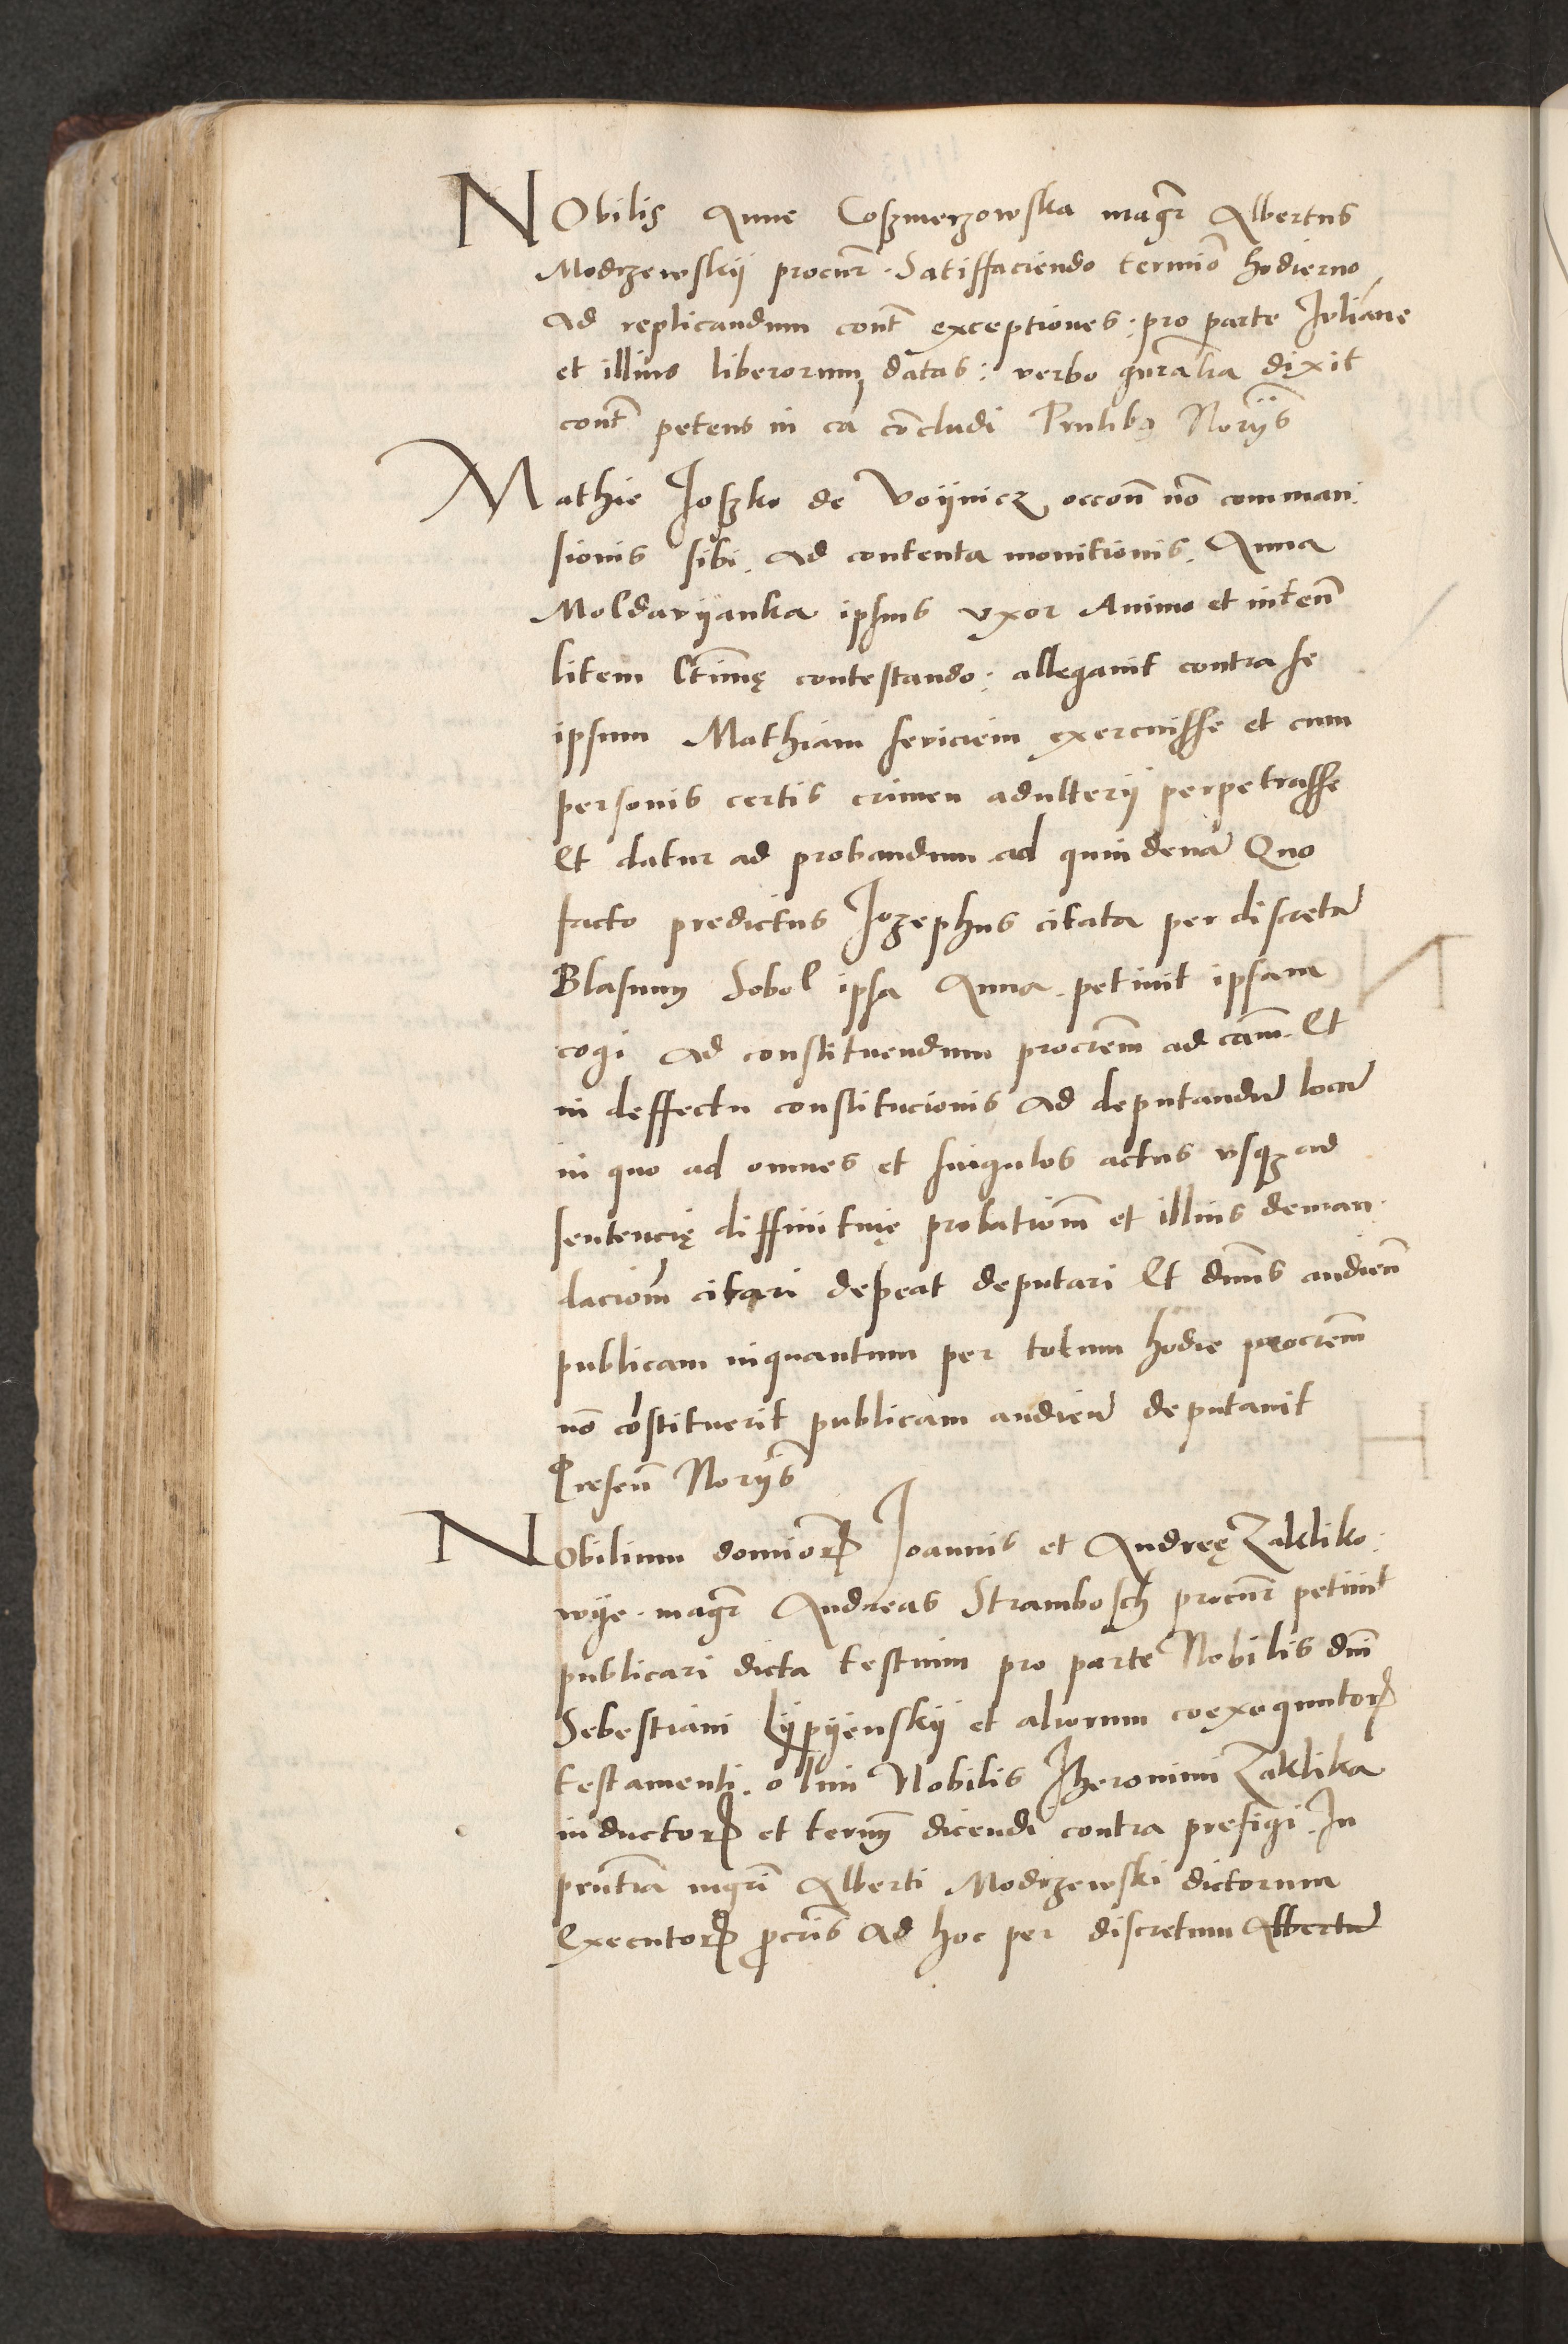 NObilis Anne Coszmerzowska magr̃ Albertus
Modrzewskij procur̃. Satisfaciendo termiõ hodierno
ad replicandum cont̃ exceptiones: pro parte Iuliane
et illius liberorum datas: verbo gñralia dixit
cont̃ petens in cã concludi Pñtibus Norijs
Mathie Joszko de Voijnicz occoñ nõ comman:
sionis sibi. ad contenta monitionis. Anna
Moldaryanka ipsius vxor Animo et inteñ
litem ltimę contestando: allegauit contra se
ipsum Mathiam seuiciem exercuisse et cum
personis certis crimen adulterij perpetrasse
Et datur ad probandum ad quindenã Quo
facto predictus Jozephus citata per discretũ
Blasium Sobol ipsa Anna. petiuit ipsam
cogi ad constituendum procrem̃ ad cam̃. Et
in deffectu constitucionis ad deputandũ locũ
in quo ad omnes et singulos actus vsqz ad
sentencię diffinitiuę probatiom̃ et illius deman
daciom̃ citari debeat deputari Et dm̃s audieñ
publicam inquantum per totum hodie procrem̃
nõ cõstituerit publicam audieñ deputauit
Preseñ Norijs
Nobilium domiõr Joannis et Andreę Zakliko:
wye. magr̃ Andreas Strambosch procur̃ petiuit
publicari dicta testium pro parte Nobilis dñi
Sebestiani Lypyenskij et aliorum coexequutor
testamenti. olim Nobilis Iheronimi Zaklika
inductor et term̃ dicendi contra prefigi. In
pñtia mgrĩ Alberti Modrzewski dictorum
Executor pcris̃ ad hoc per discretum Albertũ